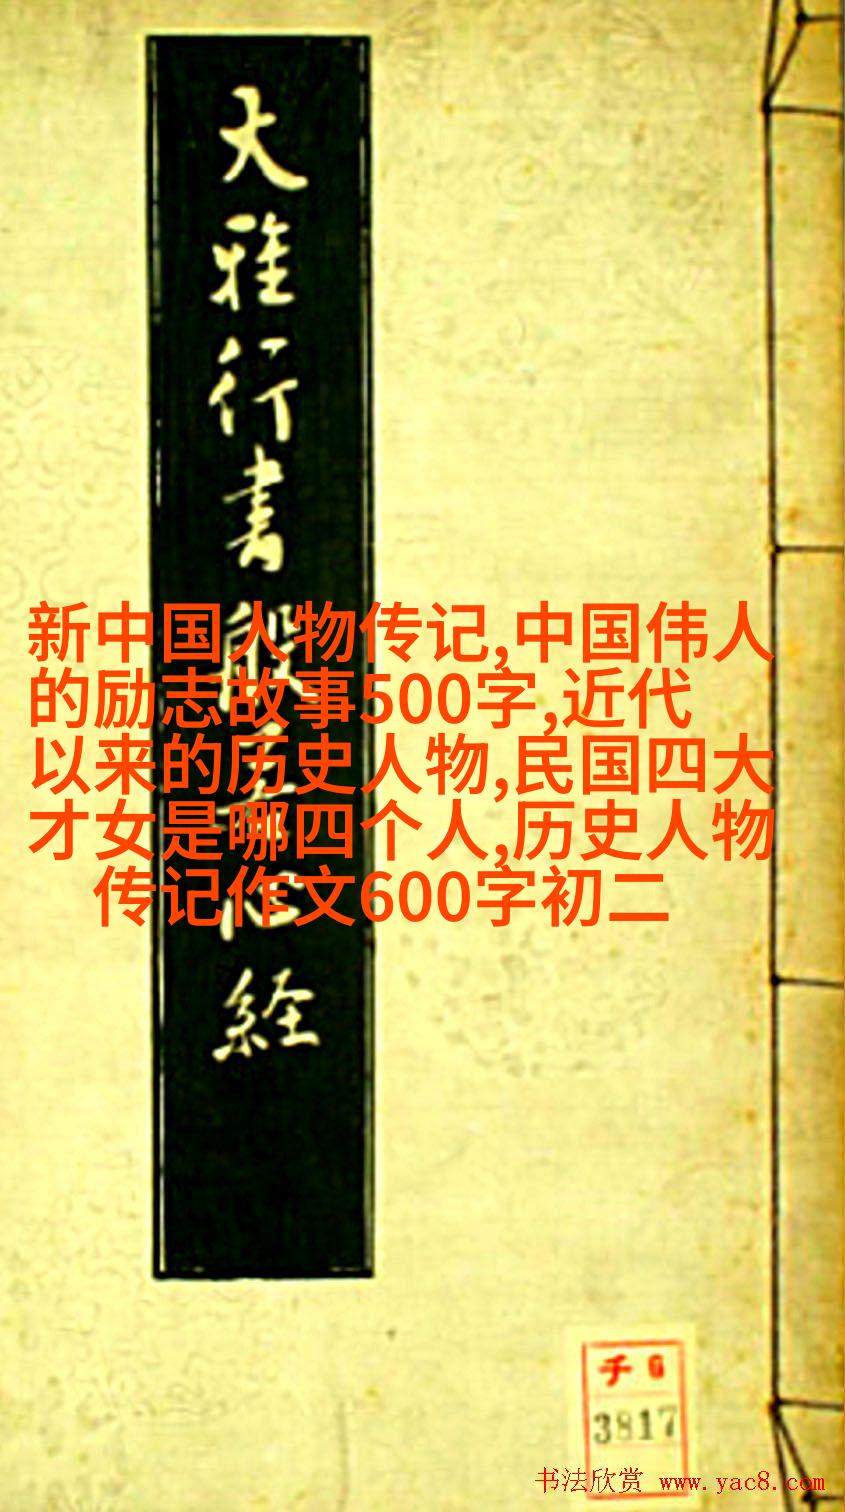 大雅行書般若心経
新中国人物传记,中国伟人
的励志故事500字,近代
以来的历史人物,民国四大
才女是哪四个人,历史人物
传记作文600字初二
チ 6
3817
书法欣赏 www.yac8.com